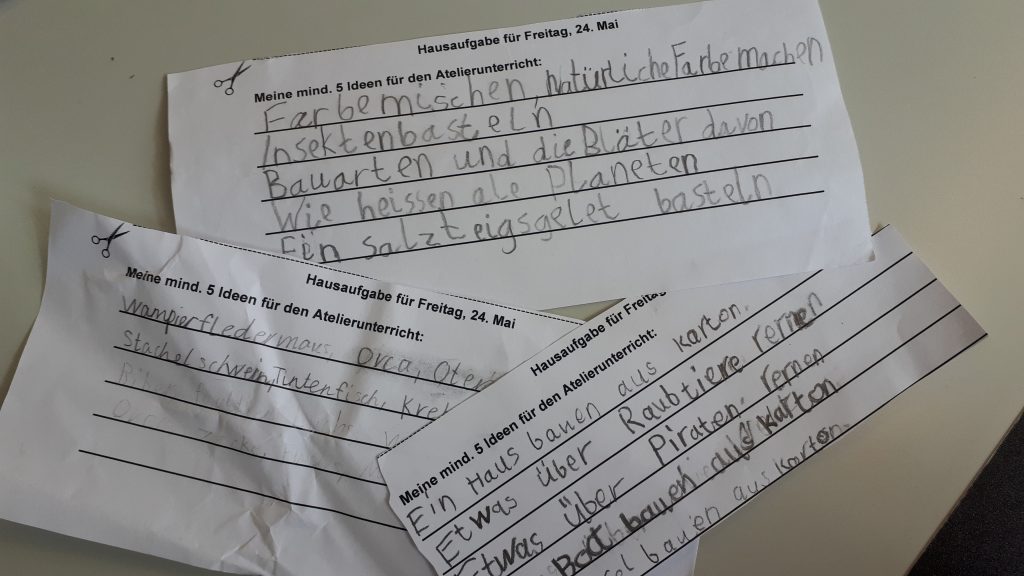 Hausaufgabe für Freitag, 24. Mai
Meine mind. 5 Ideen für den Atelierunterricht:
Farbe mischen Natürliche Farbe machen
Insekten basteln
Bauarten und die Bläter davon
Wie heissen ale Planeten
Ein salzteigsgelet basteln
Hausaufgabe für Freitag, 24. Mai
Meine mind. 5 Ideen für den Atelierunterricht:
Wamperfledermaus, Orca, Oter
Stachelschwein, Tintenfisch, Kre
Hausaufgabe für Freitag
Meine mind. 5 Ideen für den Atelierunterricht:
Ein Haus bauen aus karton.
Etwas über Raubtiere rernen
Etwas über Piraten. rernen
Boot bauen aus karton
bauen aus karton.